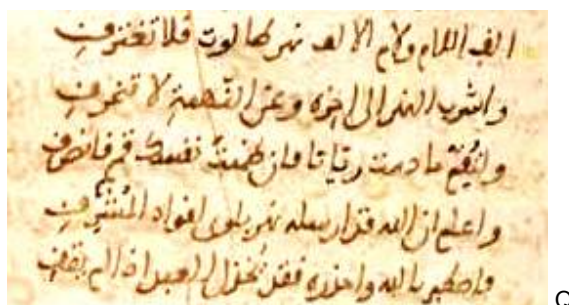 الف اللام ولام الالف نهر طالوت فلا تغترف
واشرب النهر الى اخره وعن النهمة لا تنحرف
ولتقم ما دمت ريانا فان ظمئت نفسك قم فانصرف
واعلم ان الله قد ارسله نهر بلوى لفواد المشترف
فاصطبر بالله واحذره فقد يخذل العبد اذا لم يقف